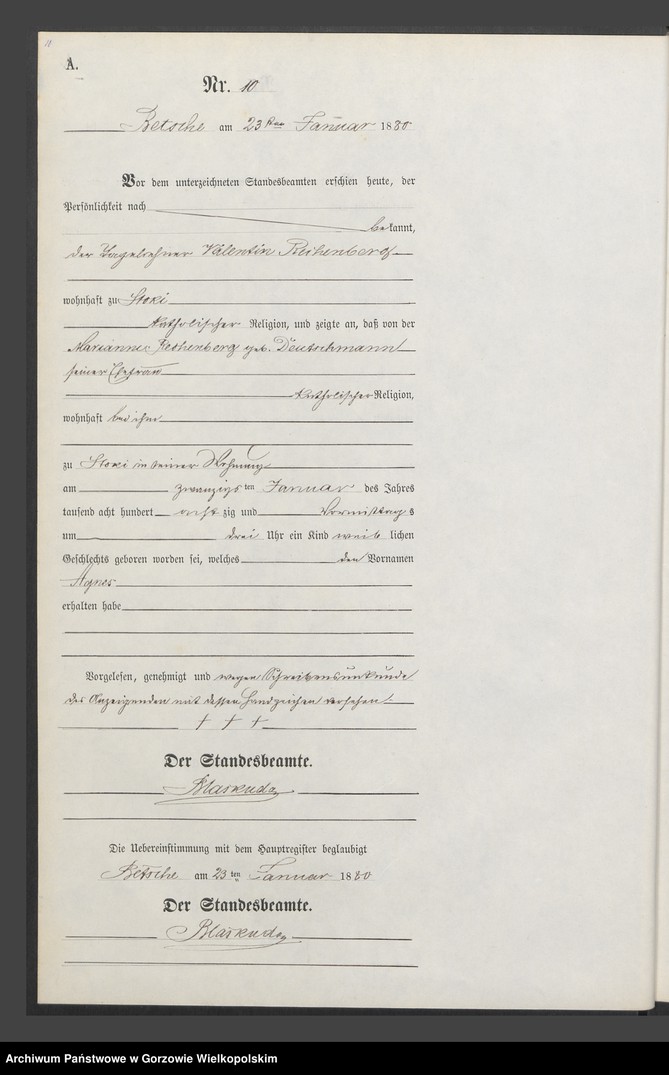 A.
Nr. 10
Betsche am 23ten Januar 1880
Vor dem unterzeichneten Standesbeamten erschien heute, der
Persönlichkeit nach
bekannt,
der Tagelöhner Valentin
wohnhaft zu Stoki
katholischer Religion, und zeigte an, daß von der
Marianne geb. Deutschmann
seiner Ehefrau
katholischer Religion,
wohnhaft bei ihm
zu Stoki in seiner Wohnung
am zwanzigsten Januar des Jahres
tausend acht hundert achtzig und Vormittags
um drei Uhr ein Kind weiblichen
Geschlechts geboren worden sei, welches den Vornamen
Agnes
erhalten habe
Vorgelesen, genehmigt und wegen Schreibensunkunde
des Anzeigenden mit dessen Handzeichen versehen
+ + +
Der Standesbeamte.
Die Uebereinstimmung mit dem Hauptregister beglaubigt
Betsche am 23ten Januar 1880
Der Standesbeamte.
Archiwum Państwowe w Gorzowie Wielkopolskim